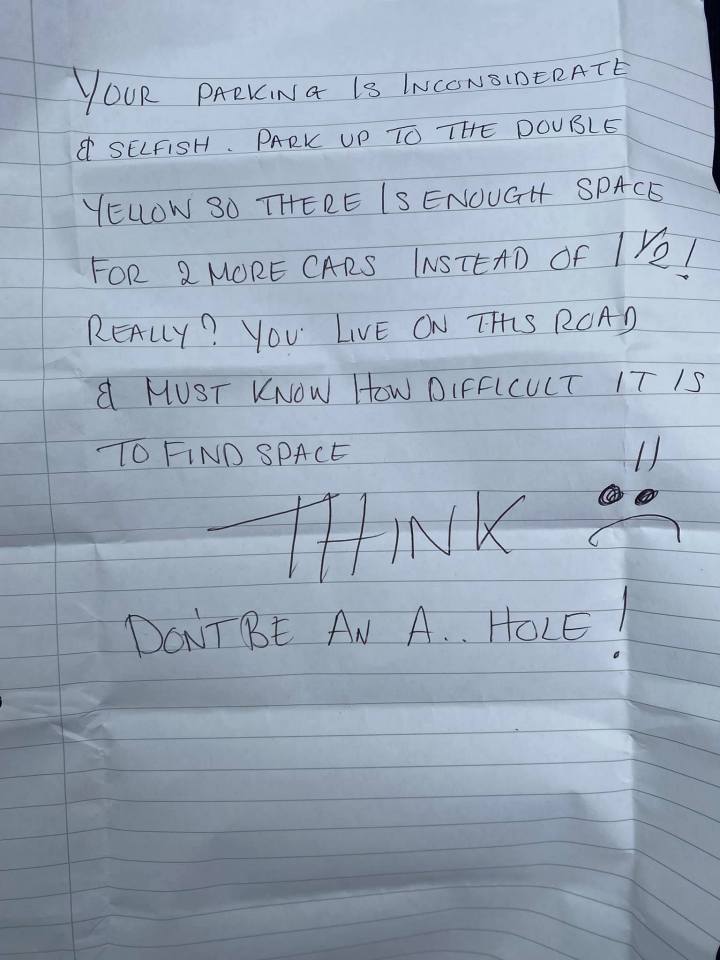 YOUR PARKING IS INCONSIDERATE
& SELFISH. PARK UP TO THE DOUBLE
YELLOW SO THERE IS ENOUGH SPACE
FOR 2 MORE CARS INSTEAD OF 1 1/2!
REALLY? YOU LIVE ON THIS ROAD
& MUST KNOW HOW DIFFICULT IT IS
TO FIND SPACE
THINK !!
DON'T BE AN A.. HOLE!